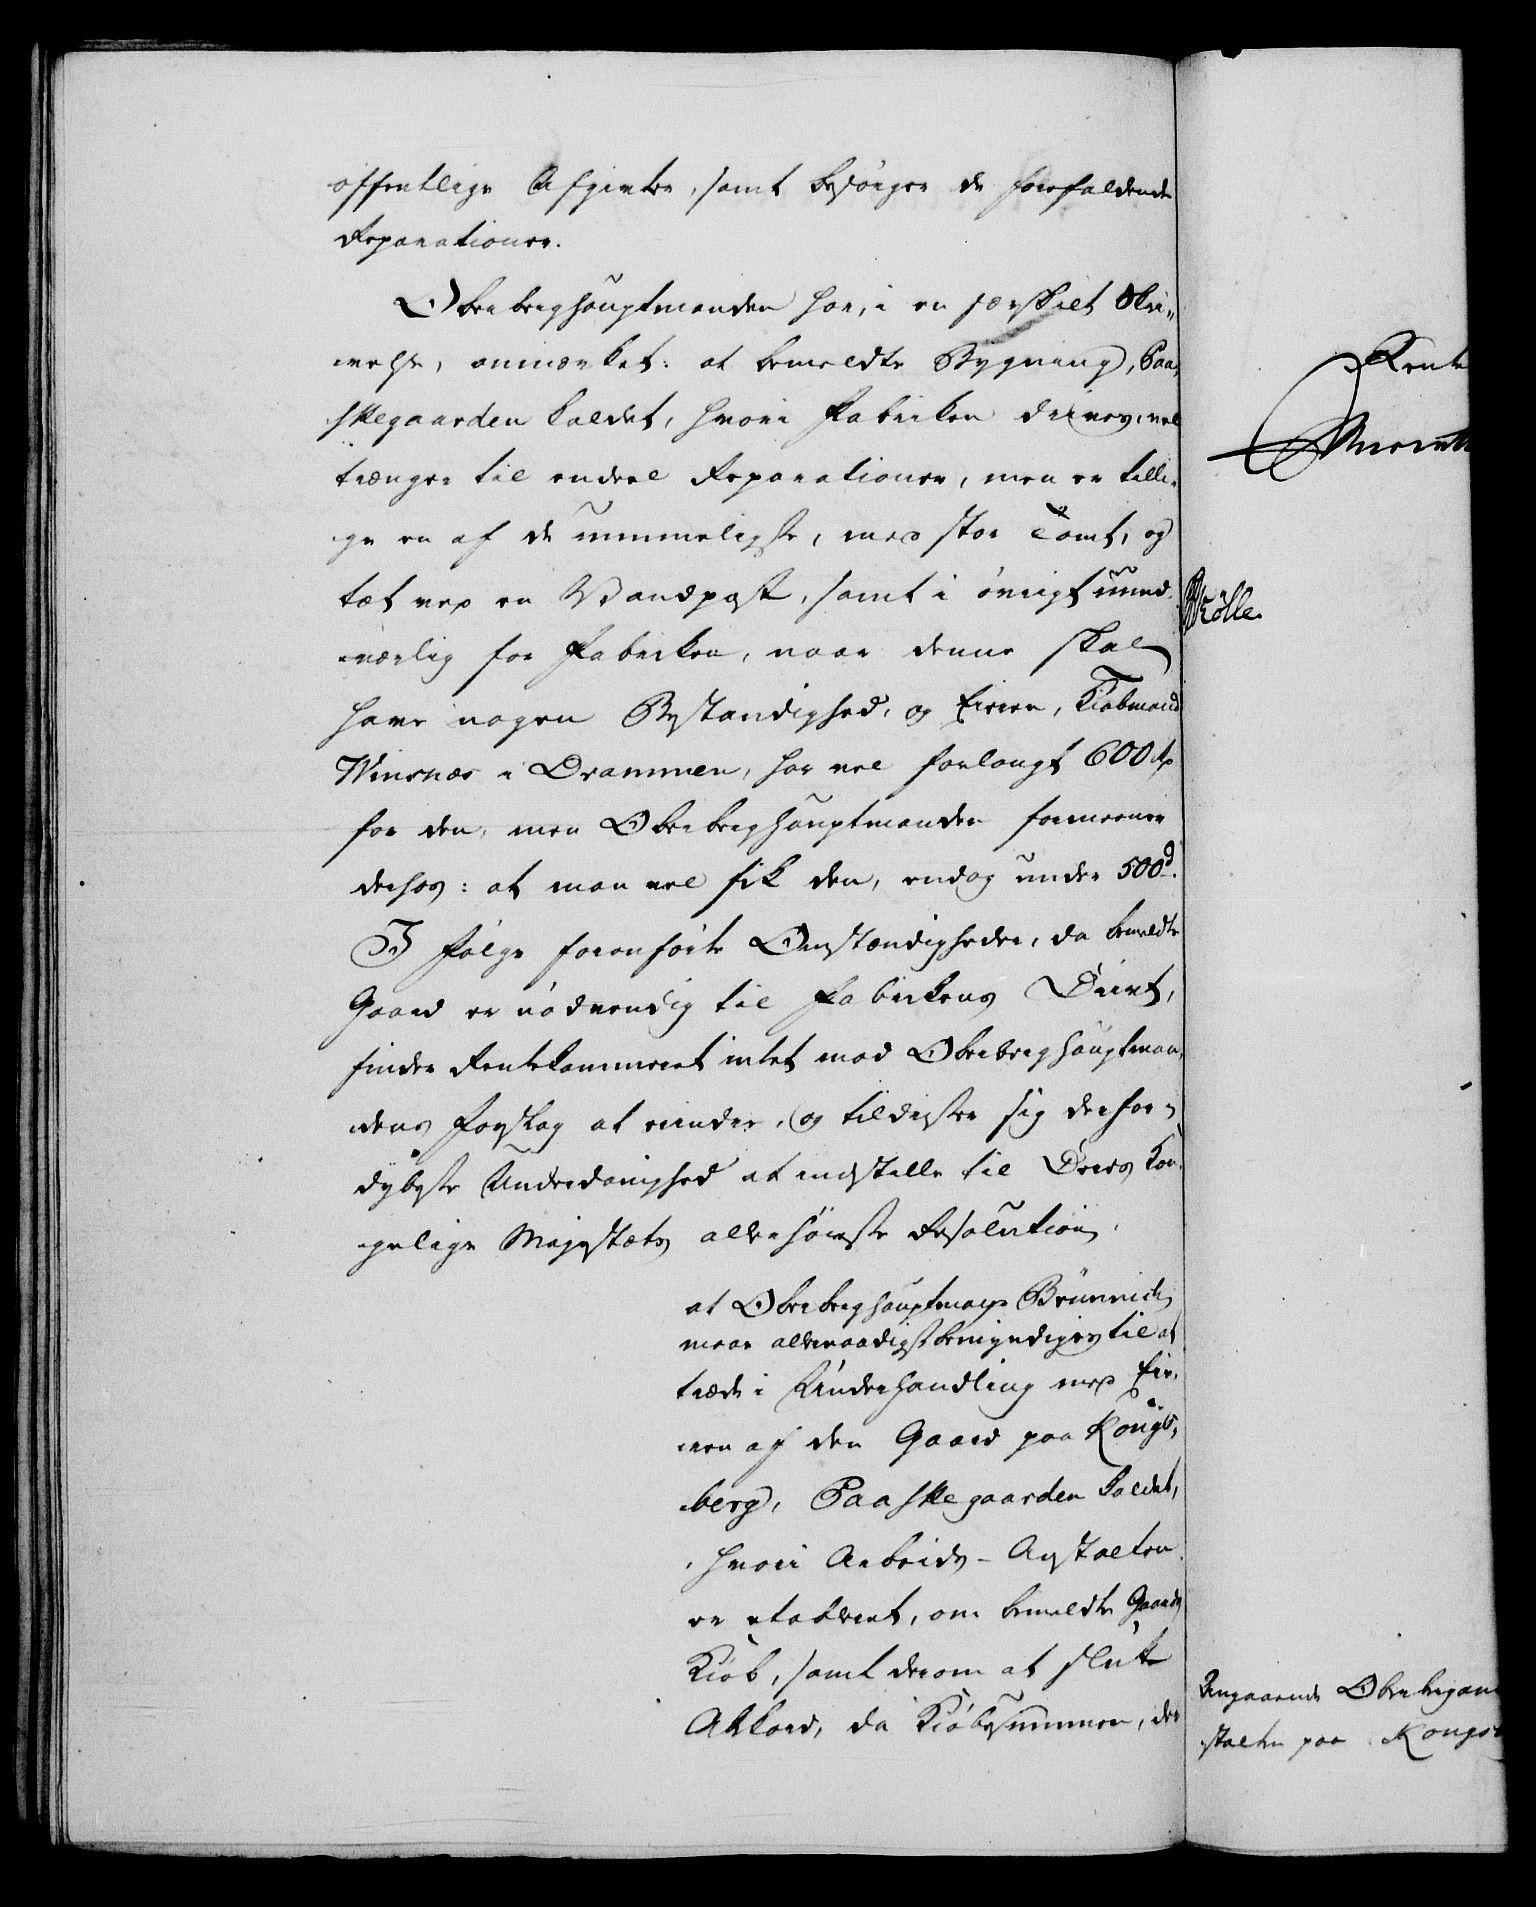 offentlige Afgivter, samt besörger de forefaldende
Reparationer.
Oberberghauptmanden har, i en særskilt Skri„
velse, anmærket: at bemeldte Bygning, Paa„
skegaarden kaldet, hvori Fabriken drives, vel
trænger til endeel Reparationer, men er tilli„
ge en af de rummeligste, med stor Tomt, og
tæt ved en Vandpost, samt i övrigt uund„
værlig for Fabriken, naar denne skal
have nogen Bestandighed, og Eieren, Kiöbmand
Winsnæs i Drammen, har vel forlangt 600 Rd
for den, men Oberberghauptmanden formeener
derhos: at man vel fik den, endog under 500d.
I fölge foranförte Omstændigheder, da bemeldte
Gaard er nödvendig til Fabrikens Drivt,
finder Rentekammeret intet mod Oberberghauptman„
dens Forslag at erindre, og tildrister sig derfor i
dybeste Underdanighed at indstille til Deres Kon„
gelige Majestæts allerhöieste Resolution,
at Oberberghauptmand Brünnich
maae allernaadigst bemyndiges til at
træde i Underhandling med Eie„
ren af den Gaard paa Kongs„
berg, Paaskegaarden kaldet,
hvori Arbeids-Anstalten
er etableret, om bemeldte Gaards
Kiöb, samt derom at slutte
Akkord, da Kiöbesummen, der
Rente
Mölle
Angaaende Oberbergam
stalten paa Kongs